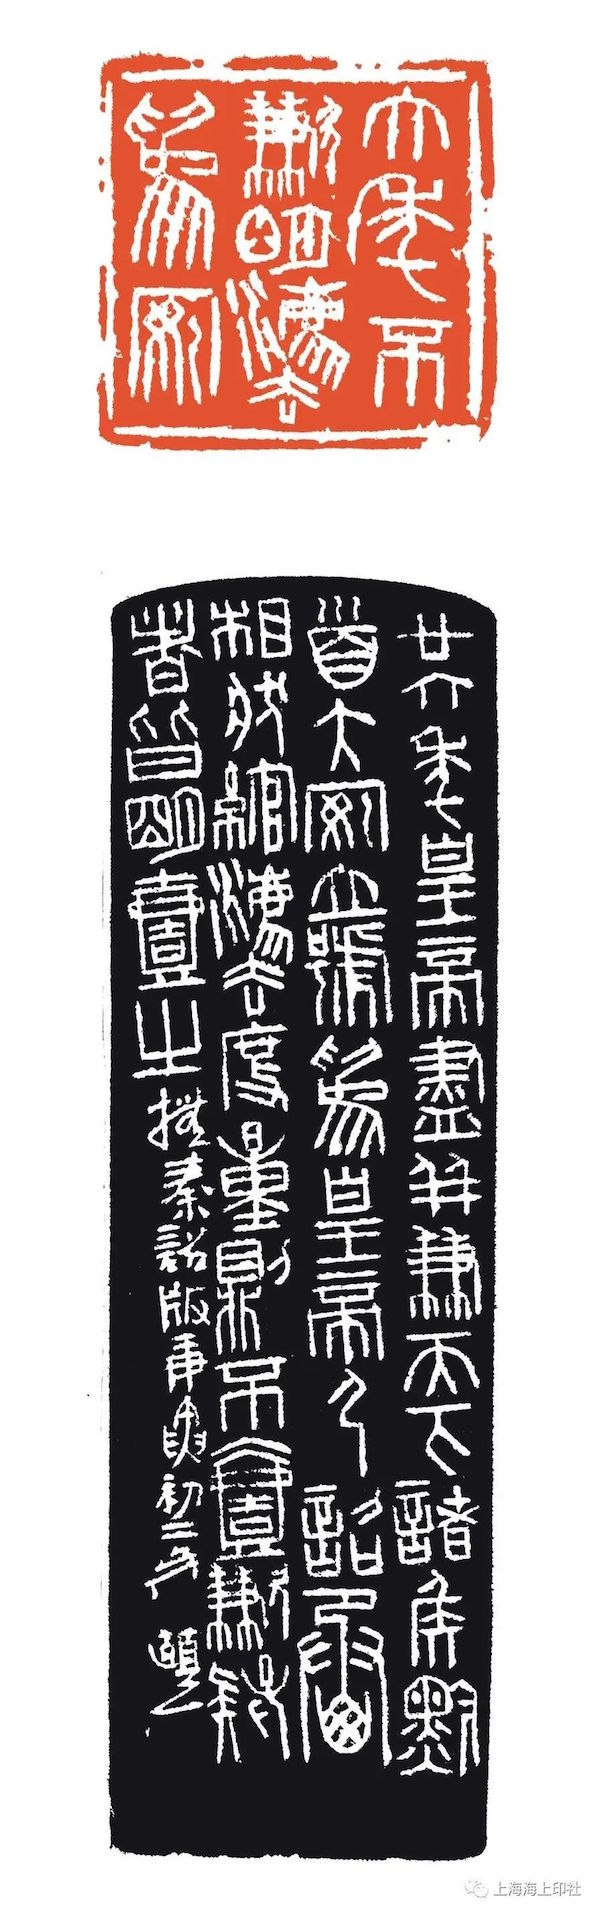 六年不
歉明灋
為安
廿六年皇帝盡并兼天下諸侯黔
首大安立號為皇帝乃詔丞
相狀綰灋度量則不壹歉疑
者皆明壹之 橅秦詔版庚寅初二
上海海上印社